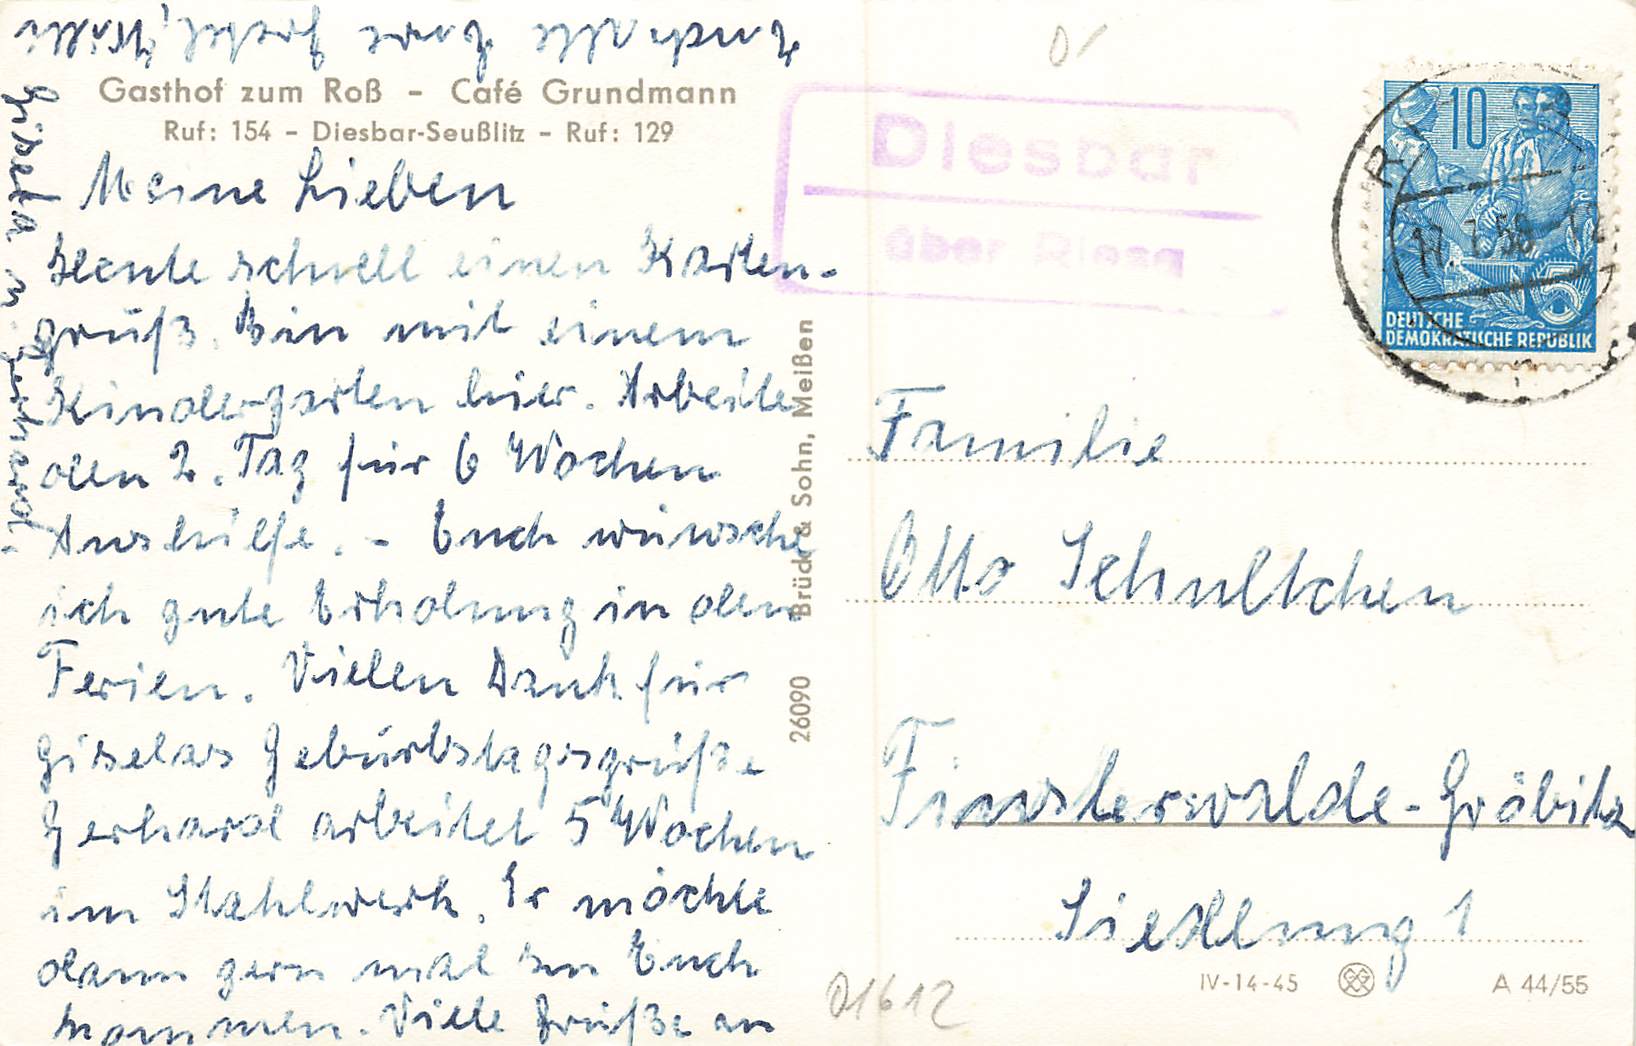 Gasthof zum Roß - Café Grundmann
Ruf: 154 - Diesbar-Seußlitz - Ruf: 129
Meine Lieben
Heute schnell einen Karten-
gruß. Bin mit einem
Kindergarten hier. Arbeite
den 2. Tag für 6 Wochen
Aushilfe. - Euch wünsche
ich gute Erholung in den
Ferien. Vielen Dank für
Giselas Geburtstagsgrüße
Gerhard arbeitet 5 Wochen
im Stahlwerk. Er möchte
dann gern mal zu Euch
kommen. Viele Grüße an
Euch alle Eure
Gisela u. Gerhard.
26090 Brück & Sohn, Meißen
Diesbar
über Riesa
10
17.7.56.-12
5
DEUTSCHE
DEMOKRATISCHE REPUBLIK
Familie
Otto Schultchen
Finsterwalde-Gröbitz
Siedlung 1
IV-14-45
A 44/55
01612